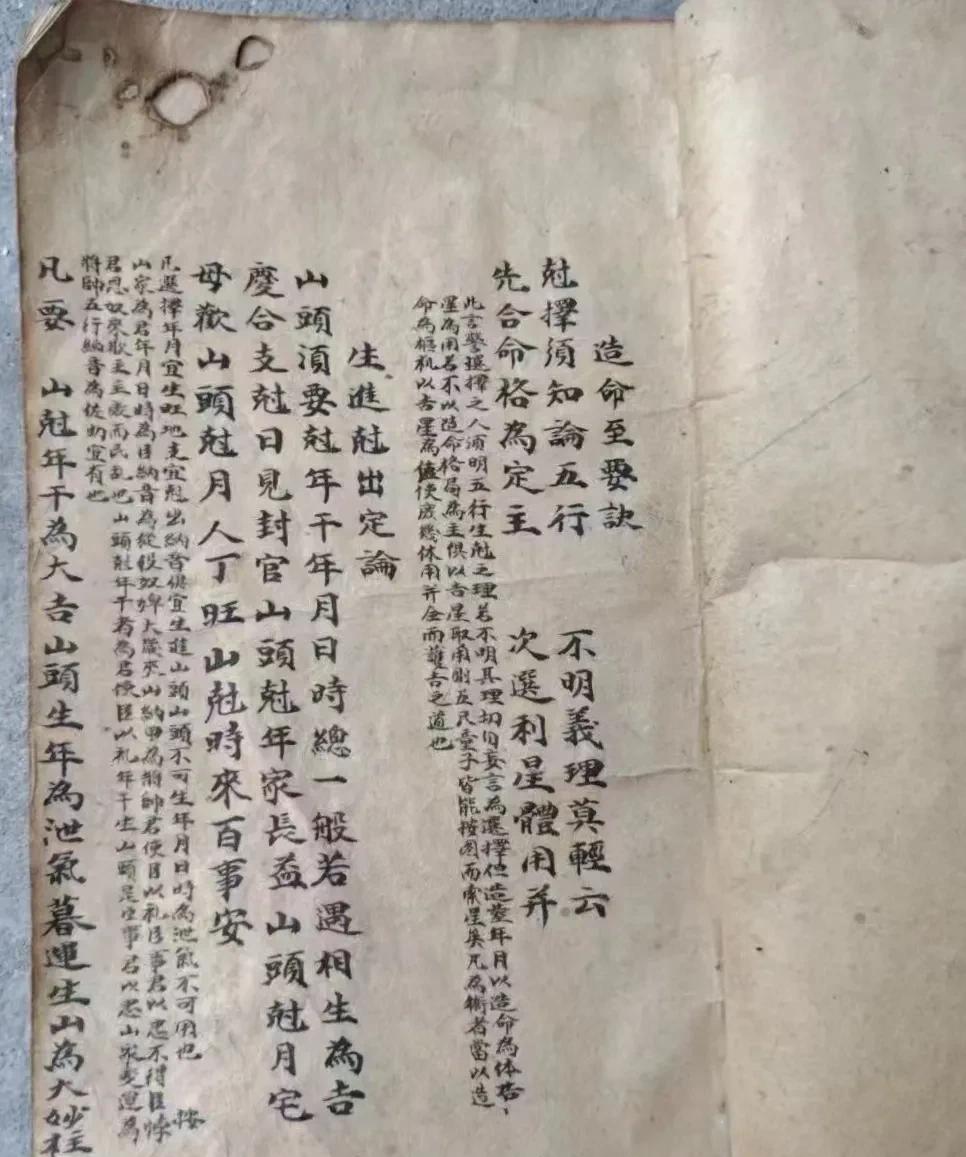 造命至要訣
尅擇須知論五行 不明義理莫輕云
先合命格為定主 次選利星體用并
此言警選擇之人須明五行生尅之理若不明其理切勿妄言為選擇但造塟年月以造命為体吉
星為用若不以造命格局為主俱以吉星取用則五尺童子皆能按圖而索星矣凡為術者當以造
命為樞机以吉星為值使庶幾体用并全而誰吉之道也
生進尅出定論
山頭須要尅年干年月日時總一般若遇相生為吉
慶合支尅日見封官山頭尅年家長益山頭尅月宅
母歡山頭尅月人丁旺山尅時來百事安
凡選擇年月宜生旺地支宜尅出納音俱宜生進山頭山頭不可生年月日時為泄氣不可用也 按
山家為君年月日時為臣納音為從役奴婢大歲來山納甲為將帥君使臣以礼臣事君以忠不得臣悖
君恩奴欺主主 而民乱也山頭尅年干者為君使臣以礼年干生山頭是臣事君以忠山家变運為
將帥五行納音為佐助宜有也
凡要 山尅年干為大吉山頭生年為泄氣暮運生山為大妙柱